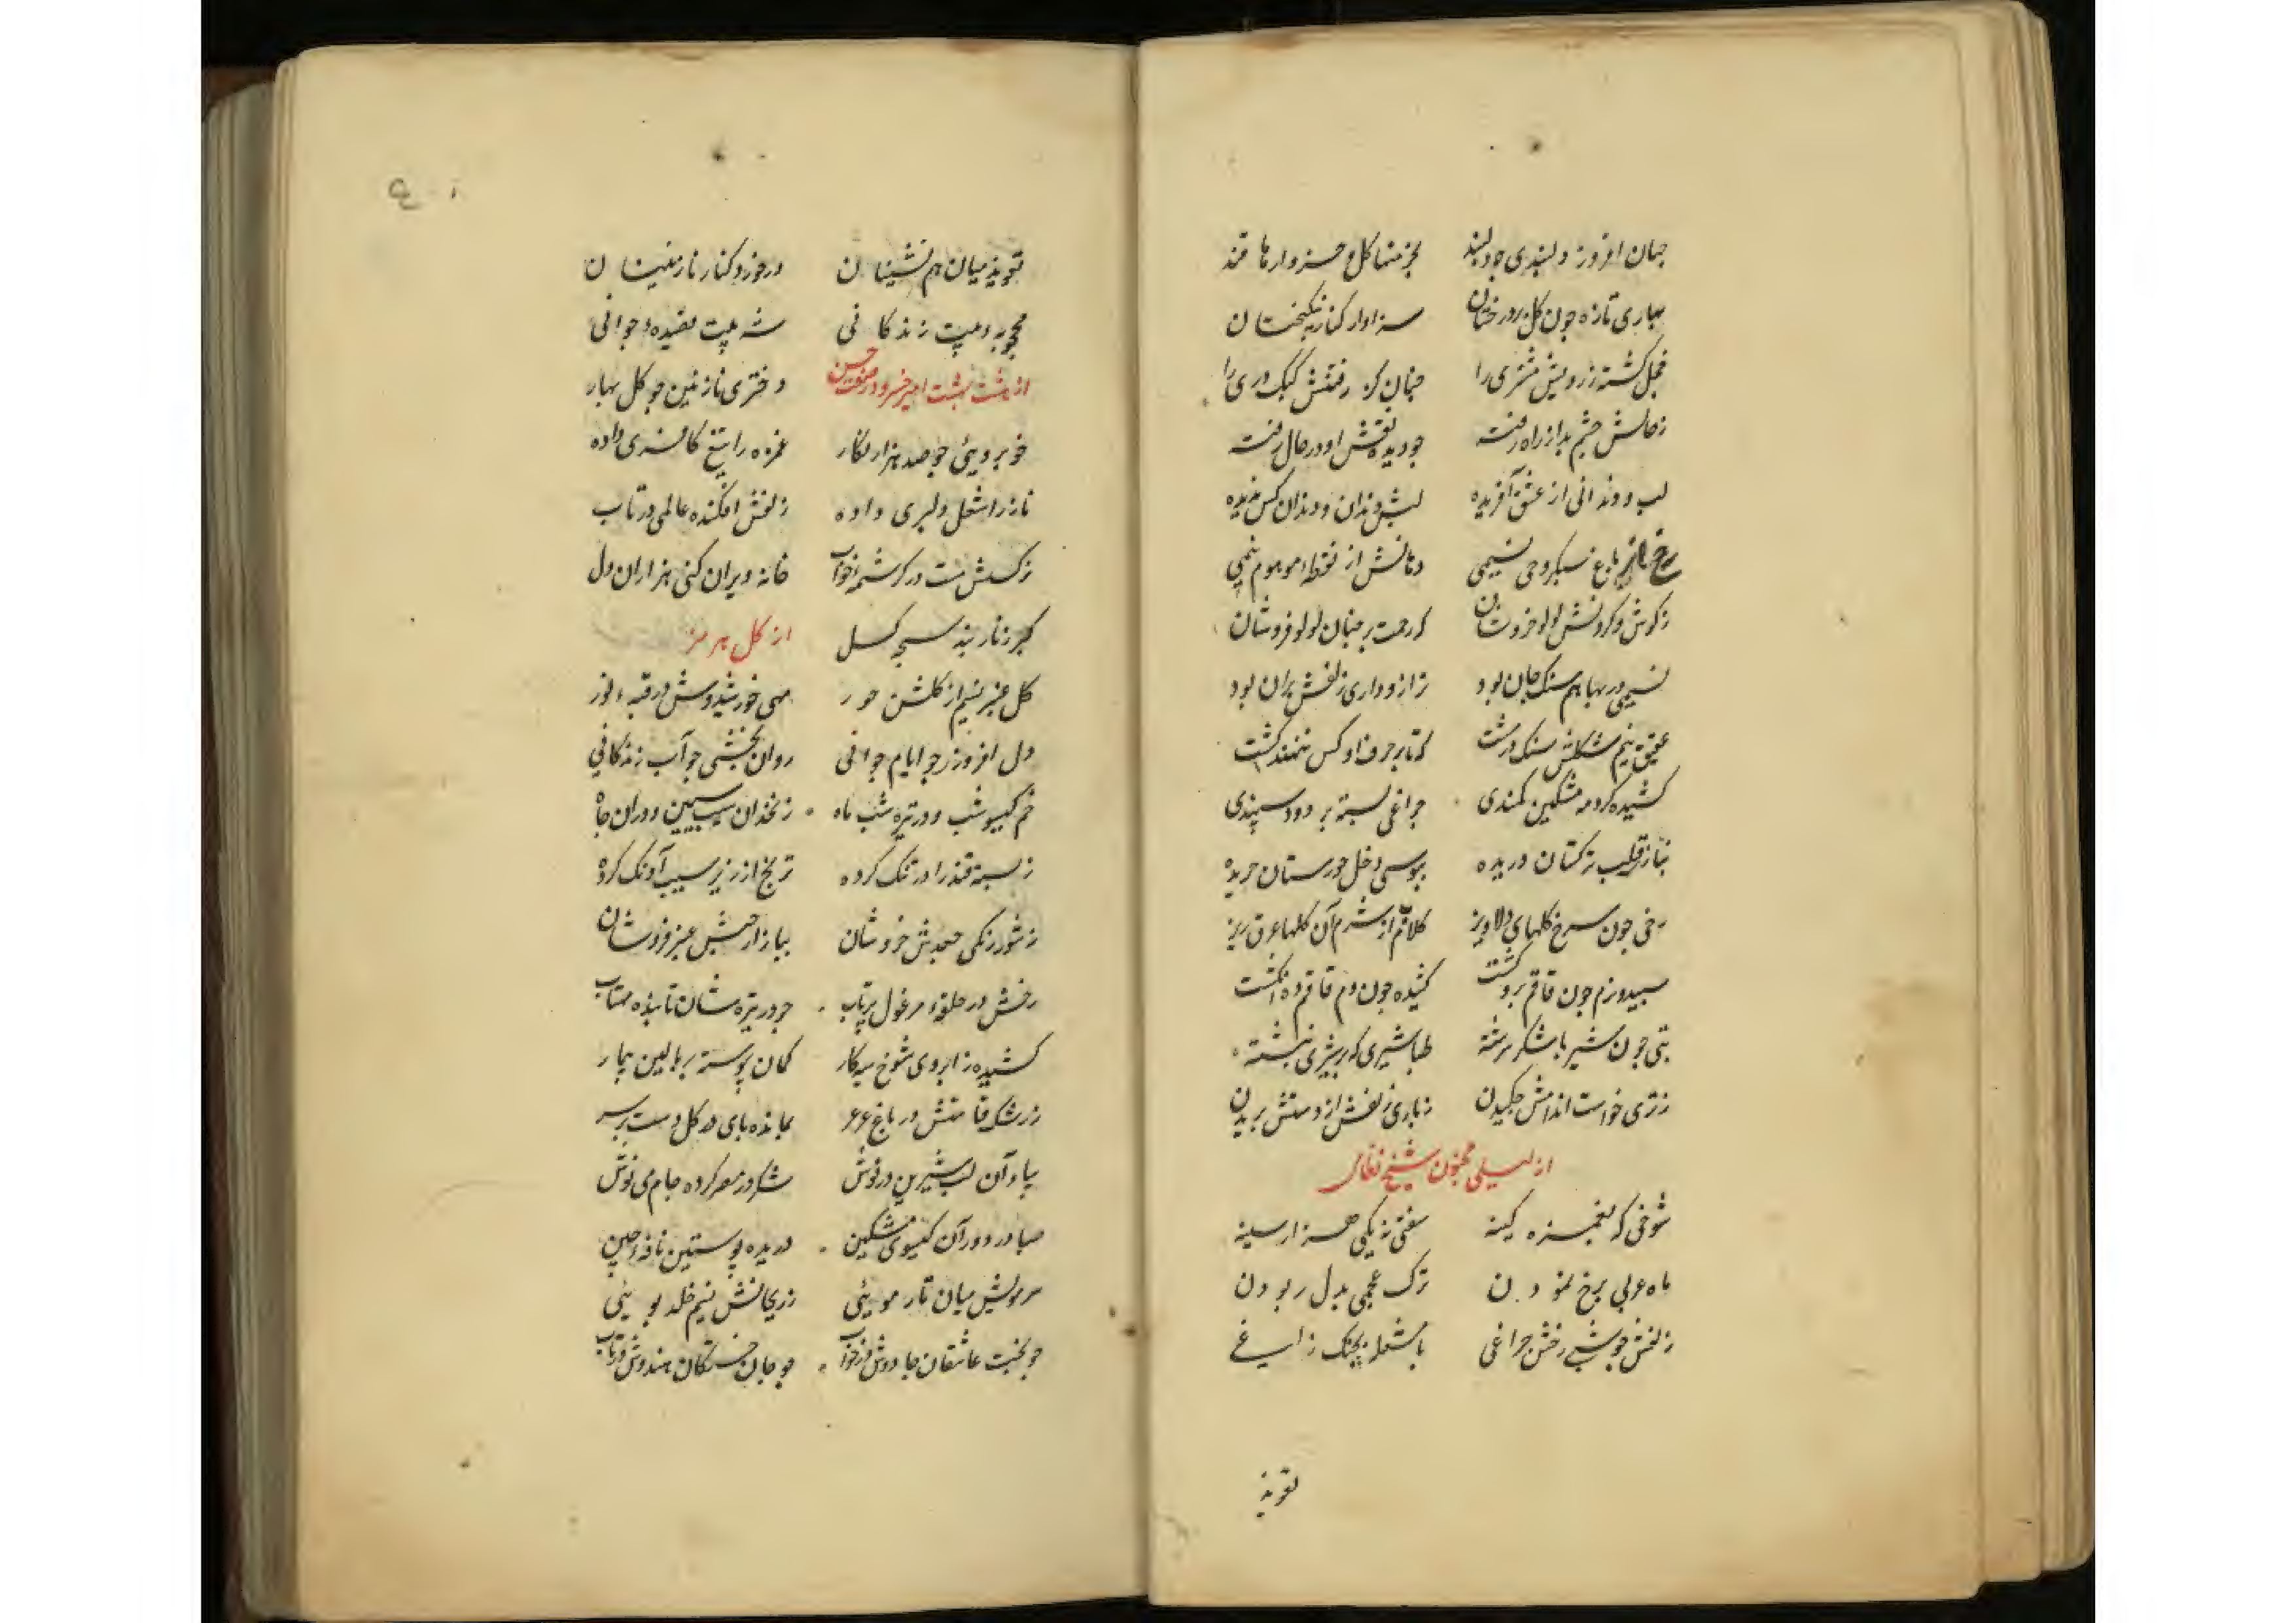 جهان افروز دلبندی چو دلبند بخرمنها کل و خروارها قند
بهاری تازه چون کل بر درختان سزاوار کنار نیکبختان
خجل کشته ز رویش مشتری را چنان کز رفتنش کبک دری را
ز حالش چشم بد از راه رفته چو دیده نقش او در حال رفته
لب و دندانی از عشق آفریده لبش دندان و دندان کس ندیده
رخ از باغ سبکروحی نسیمی دهانش از نقطه موهوم نیمی
ز کوش و کردنش لولو خروشان که رحمت بر چنان لولو فروشان
نسیمی در بها هم سنک جان بود ترازوداری زلفش بران بود
عقیق نیم شکلش سنک در مشت که تا بر حرف او کس ننهد انکشت
کشیده کرد مه مشکین کمندی چراغی بسته بر دود سپندی
بناز قلب ترکستان دریده ببوسی دخل خوزستان خریده
رخی چون سرخ کلهای دلاویز کلاب از شرم آن کلها عرق ریز
سپید و نرم چون قاقم بر و پشت کشیده چون دم قاقم ده انکشت
تنی چون شیر با شکر سرشته طباشیری که بر شیری نبشته
ز تری خواست اندامش چکیدن ز بازی زلفش از دستش بریدن
از لیلی مجنون شیخ نظامی
شوخی که بغمزه کمینه سفتی نه یکی هزار سینه
ماه عربی برخ نمودن ترک عجمی بدل ربودن
زلفش چو شبی رخش چراغی با مشعله بچنک زاغی
تعویذ
تعویذ میان هم نشینان درخورد کنار نازنینان
محبوبه و بیت زندکانی شه بیت قصیده جوانی
از هشت بهشت امیر خسرو در صفت حسن دختری نازنین چو کل بهار
خوبرویی چو صد هزار نکار غمزه را تیغ کافری داده
ناز را شغل دلبری داده زلفش افکنده عالمی در تاب
نرکسش مست در کرشمه و خواب خانه ویران کنی هزاران دل
کبر زنار بند سبحه کسل از کل هرمز
کل عنبر نسیم از کلشن حور مهی خورشیدوش در قبه نور
دل افروز چو ایام جوانی روان بخشی چو آب زندکانی
خم کیسو شب و در تیره شب ماه زنخدان سیب سیمین و دران چاه
ز بسته قند را در تنک کرده ترنج از زیر سیب آونک کرده
ز شور زنکی جعدش خروشان ببازار حبش عنبر فروشان
رخش در حلقه مرغول پرتاب چو در تیره شبان تابنده مهتاب
کشیده ز ابروی شوخ سیه کار کمان پیوسته بر بالین بیمار
ز رشک قامتش در باغ عرعر بمانده پای در کل دست بر سر
بیاد آن لب شیرین در نوش شکر در مصر کرده جام می نوش
صبا در دور آن کیسوی مشکین دریده پوستین نافه چین
سر مویش میان تار مویی ز ریحانش نسیم خلد بویی
چو بخت عاشقان جادوش در خواب چو جان خستکان هندوش در تاب